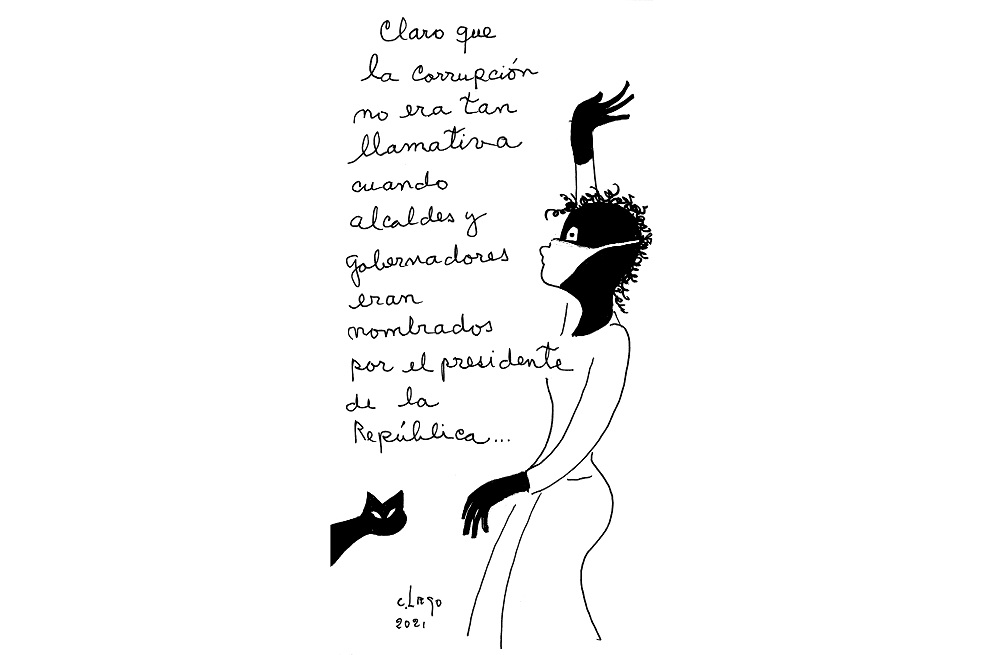 Claro que
la corrupción
no era tan
llamativa
cuando
alcaldes y
gobernadores
eran
nombrados
por el presidente
de la
República...
c. Lago
2021